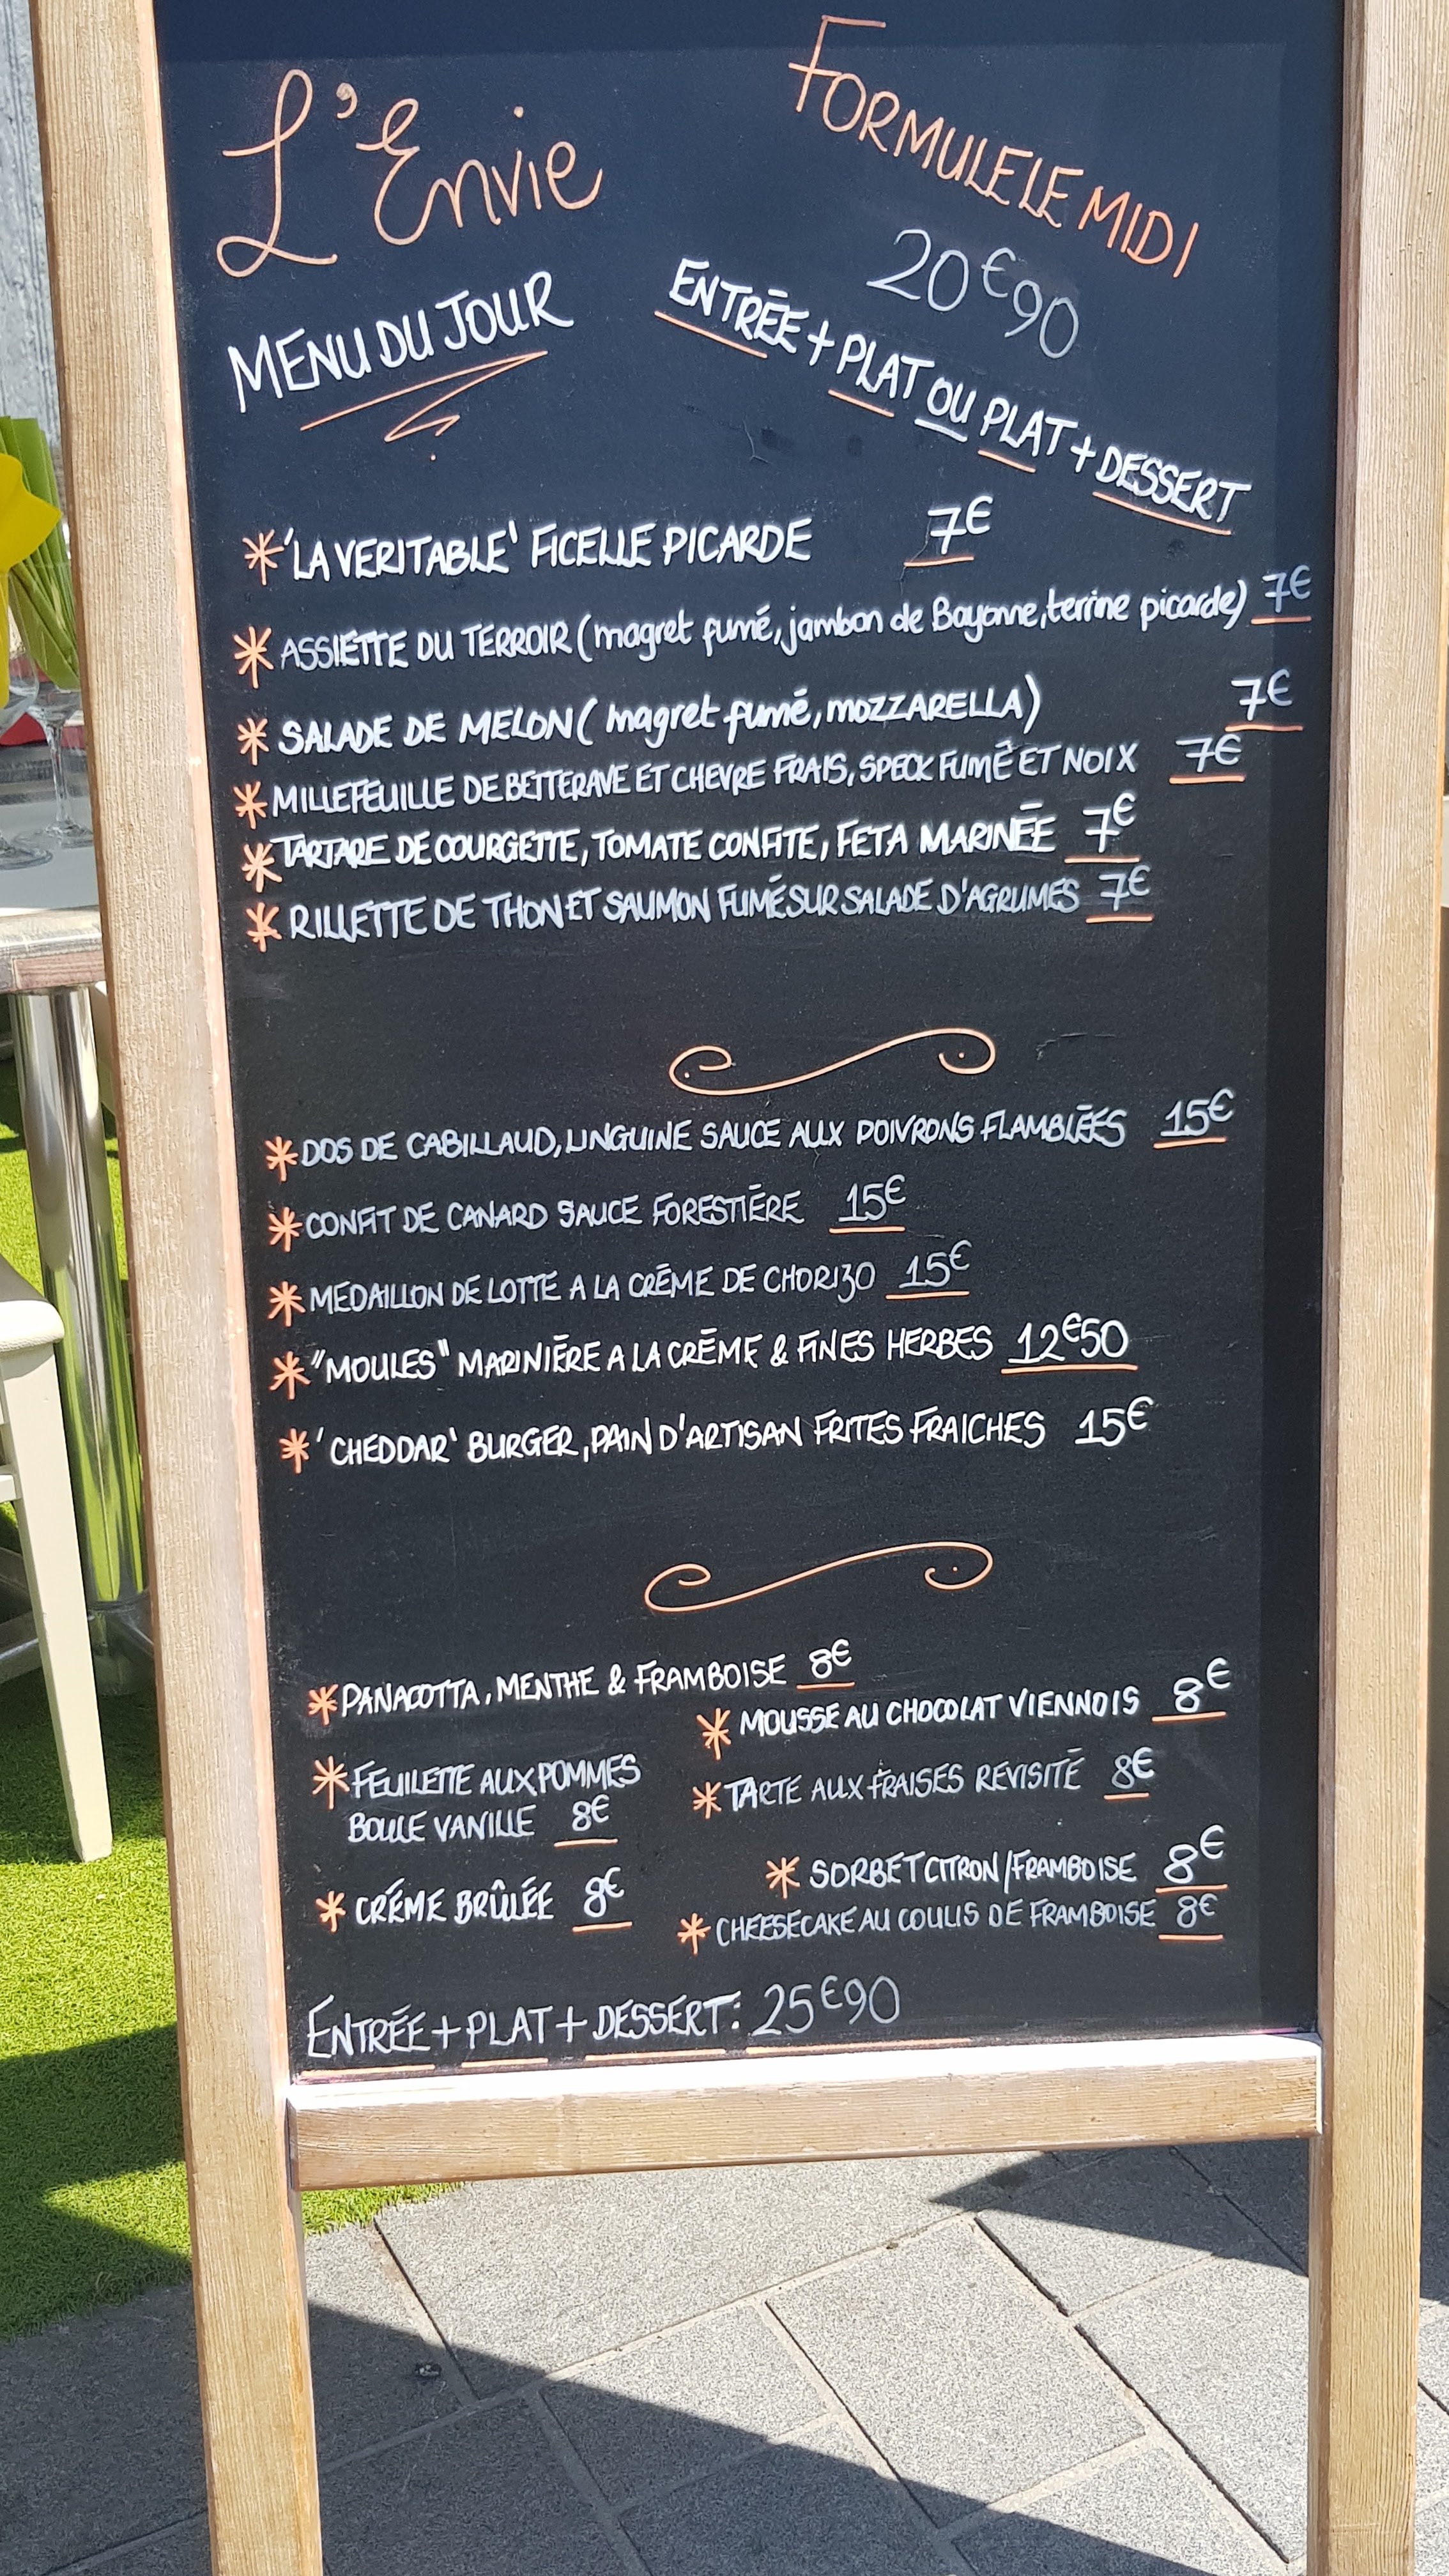 L'Envie
FORMULE LE MIDI
20€90
MENU DU JOUR
ENTRÉE + PLAT OU PLAT + DESSERT
*'LA VERITABLE' FICELLE PICARDE 7€
*ASSIETTE DU TERROIR (magret fumé, jambon de Bayonne, terrine picarde) 7€
*SALADE DE MELON (magret fumé, MOZZARELLA) 7€
*MILLEFEUILLE DE BETTERAVE ET CHEVRE FRAIS, SPECK FUMÊ ET NOIX 7€
*TARTARE DE COURGETTE, TOMATE CONFITE, FETA MARINÉE 7€
*RILLETTE DE THON ET SAUMON FUMÉ SUR SALADE D'AGRUMES 7€
*DOS DE CABILLAUD, LINGUINE SAUCE AUX POIVRONS FLAMBLÉES 15€
*CONFIT DE CANARD SAUCE FORESTIÉRE 15€
*MEDAILLON DE LOTTE A LA CRÉME DE CHORIZO 15€
*"MOULES" MARINIÉRE A LA CRÉME & FINES HERBES 12€50
*'CHEDDAR' BURGER, PAIN D'ARTISAN FRITES FRAICHES 15€
*PANACOTTA, MENTHE & FRAMBOISE 8€
*MOUSSE AU CHOCOLAT VIENNOIS 8€
*FEUILETTE AUX POMMES
BOULE VANILLE 8€
*TARTE AUX FRAISES REVISITÉ 8€
*SORBET CITRON/FRAMBOISE 8€
*CRÉME BRÛLÉE 8€
*CHEESECAKE AU COULIS DE FRAMBOISE 8€
ENTRÉE + PLAT + DESSERT: 25€90